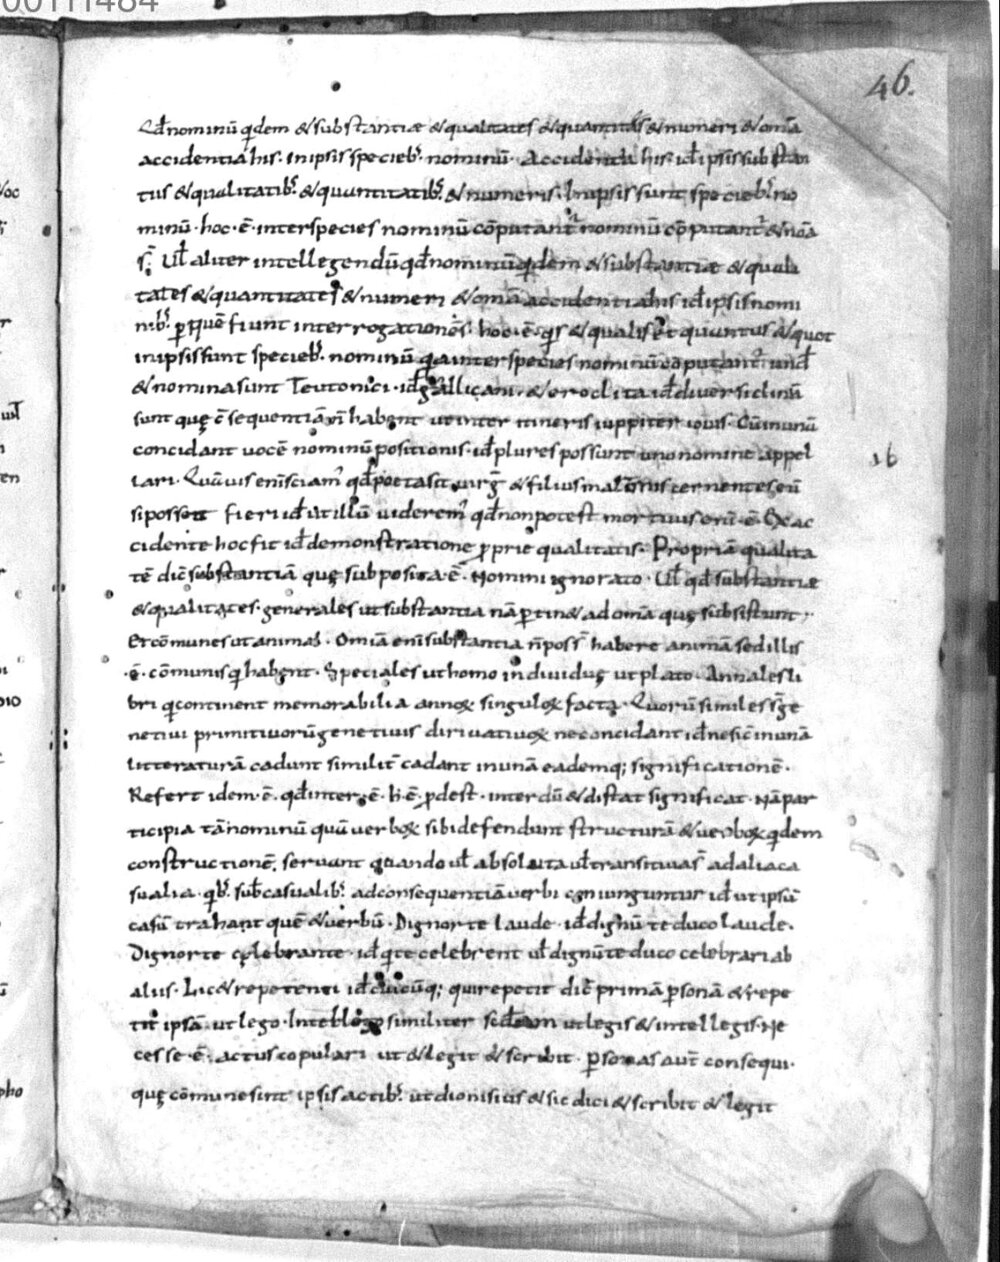 00111484
46.
Qd̄ nominū qdem & substantiæ & qualitates & quantitas & numeri & om̄a
accidentia his. in ipsis specieb; nominū. Accidentia his. id ipsis substan
tus & qualitatib; & quantitatib; & numeris. In ipsis sunt specieb; no
minū. hoc. ē. inter species nominū cōputant̄ nominū cōputant̄ & nōa
s̄. Ul̄ aliter intellegendū qd̄ nominū qdem & substantiæ & quali
tates & quantitates & numeri & om̄a accidentia his id ipsis nomi
nib; p quē fiunt interrogationes. hoc. ē. qs & qualis et quantus & quot
in ipsis sunt specieb; nominū quia inter species nominū cōputant̄. und̄
& nomina sunt Teutonici. id gallicani. & eroclita id diversiclinia
sunt quę c̄sequentiā n̄ habent ut inter itineris iuppiter iovis. Cū in unā
concidant vocē nominū positionis. id plures possunt uno nomine appel
lari. Quāvis enī sciam qd̄ poeta sit virḡ & filius
16
si possett fieri id ut illū viderem qd̄ non potest mortuus enī. ē. Ex ac
cidente hoc fit id demonstratione p̄prie qualitatis. Propriā qualita
tē dic̄ substantiā quę subposita. ē. Nomini ignorato. Ul̄ qd̄ substantiæ
& qualitates. generales ut substantia nā ptin& ad om̄a quę subsistunt;
Et cōmunes ut animal. Om̄ia enī substantia n̄ poss̄ habere animā sed illis
.ē. cōmunis q habent. Speciales ut homo individuę ut plato. Annales li
bri q continent memorabilia annoꝝ singuloꝝ facta. Quorū similes s̄ ge
netivi primitivorū genetivis dirivativoꝝ ne concidant id ne sic̄ in unā
litteraturā cadunt similit̄ cadant in unā eademq; significationē.
Refert idem. ē. qd̄ inter. ē. h̄. ē. pdest. interdū & distat significat. Nā par
ticipia tā nominū quā verboꝝ sibi defendunt structurā & verboꝝ qdem
constructionē. servant quando ul̄ absoluta ul̄ transitivas ad alia ca
sualia. qb; sub casualib; ad consequentiā verbi coniunguntur id ut ipsū
casū trahant quē & verbū. Dignor te laude. id dignū te duco laude.
Dignor te celebrante. id q te celebrent ul̄ dignū te duco celebrari ab
aliis. Lic& repetenti id cuicūq; qui repetit dic̄ primā psonā & repe
tit ipsā. ut lego. Intellego similiter scdam ut legis & intellegis. Ne
cesse. ē. actus copulari ut & legit & scribit. psonas aut̄ consequi.
quę cōmune sint ipsis actib; ut dionisius & sic dici & scribit & legit